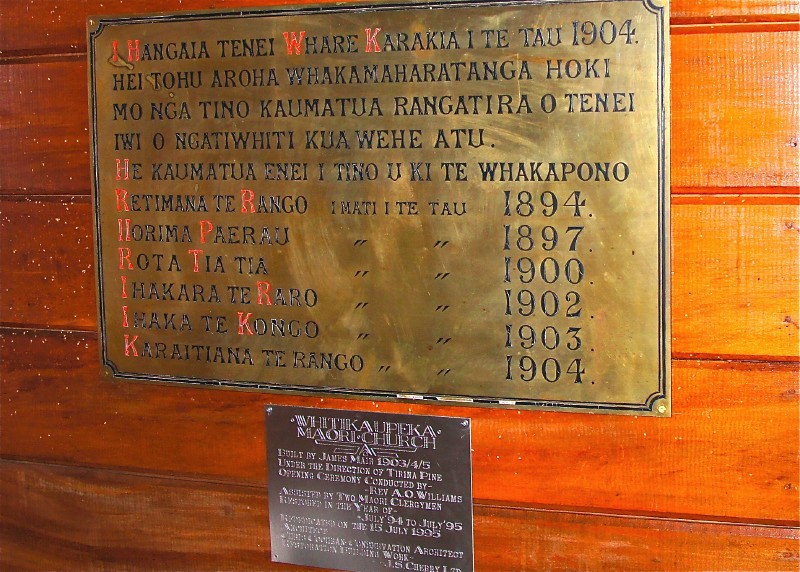 I HANGAIA TENEI WHARE KARAKIA I TE TAU 1904.
HEI TOHU AROHA WHAKAMAHARATANGA HOKI
MO NGA TINO KAUMATUA RANGATIRA O TENEI
IWI O NGATIWHITI KUA WEHE ATU.
HE KAUMATUA ENEI I TINO U KI TE WHAKAPONO
RETIMANA TE RANGO I MATI I TE TAU 1894.
HORIMA PAERAU " " 1897.
ROTA TIA TIA " " 1900.
IHAKARA TE RARO " " 1902.
IHAKA TE KONGO " " 1903.
KARAITIANA TE RANGO " " 1904.
·WHITIKAUPEKA·
MAORI·CHURCH
BUILT BY JAMES MAIR 1903/4/5
UNDER THE DIRECTION OF TIRINA PINE
OPENING CEREMONY CONDUCTED BY-
-REV A.O. WILLIAMS
ASSISTED BY TWO MAORI CLERGYMEN
RESTORED IN THE YEAR OF-
-JULY '94 TO JULY '95
REDEDICATED ON THE 15 JULY 1995
ARCHITECT
CONSERVATION ARCHITECT
RESTORATION BUILDING WORK-
J.S. CHERRY LTD